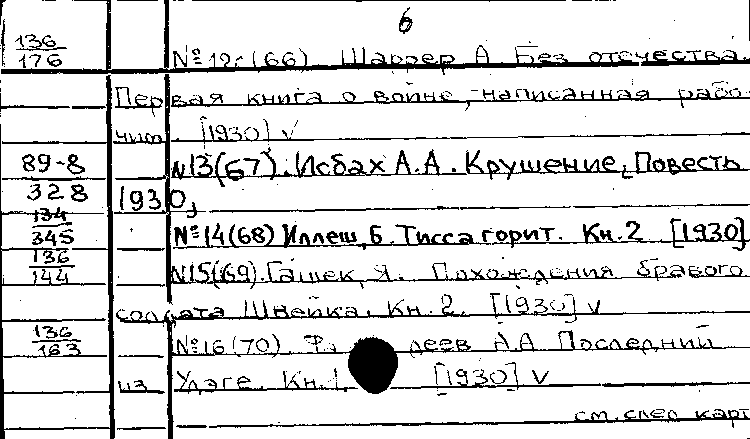 6
136
176 №12г(66) Шаррер А Без отечества.
Первая книга о войне, написанная рабо-
чим. [1930] V
89-8 №13(67). Исбах А.А. Крушение, Повесть
328 1930,
134
345 №14(68) Иллеш, Б. Тисса горит. Кн.2 [1930]
136
144 №15(69). Гашек, Я. Похождения бравого
солдата Швейка. Кн. 2. [1930] V
136
163 №16(70). Фадеев А.А Последний
из Удэге. Кн.1. [1930] V
см. след карт